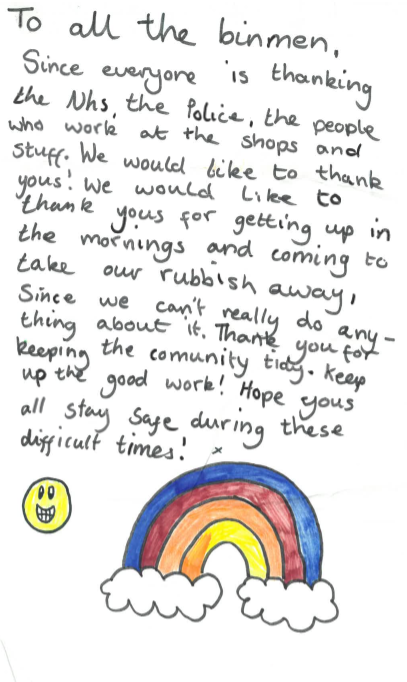 To all the binmen,
Since everyone is thanking
the Nhs, the Police, the people
who work at the shops and
stuff. We would like to thank
yous! We would like to
thank yous for getting up in
the mornings and coming to
take our rubbish away,
Since we can't really do any-
thing about it. Thank you for
keeping the comunity tidy. Keep
up the good work! Hope yous
all stay safe during these
difficult times! x